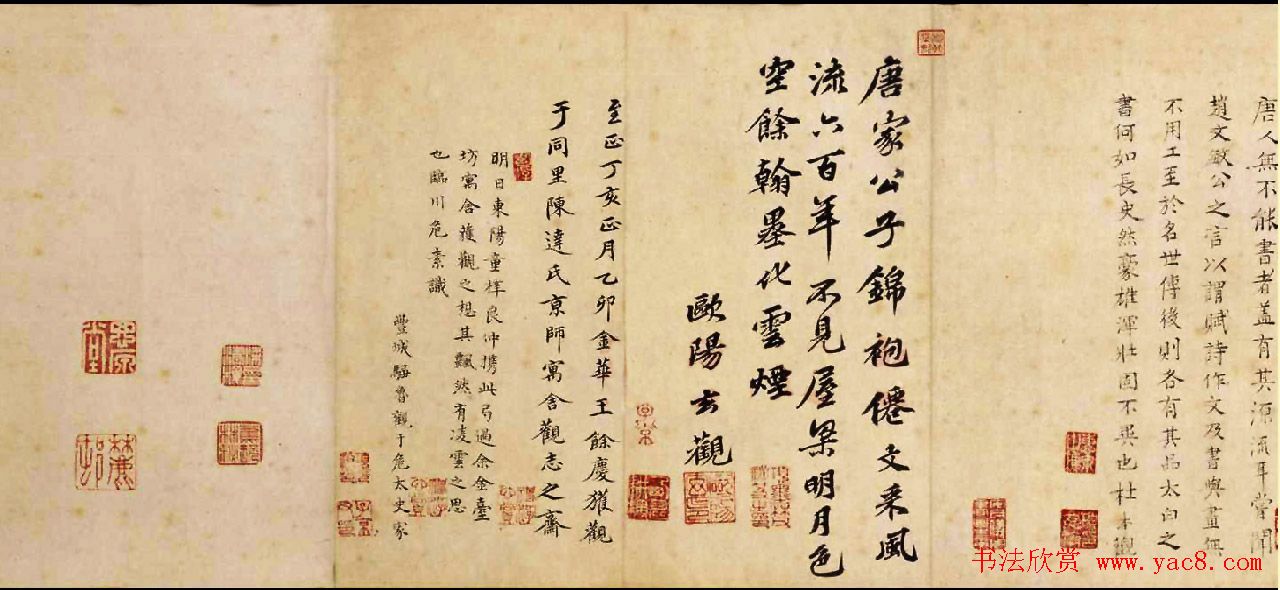 唐人無不能書者蓋有其源流耳嘗聞
趙文敏公之言以謂賦詩作文及書與畫無
不用工至於名世傳後則各有其品太白之
書何如長史然豪雄渾壯固不異也杜本觀
唐家公子錦袍僊文采風
流六百年不見屋梁明月色
空餘翰墨化雲煙
歐陽玄觀
至正丁亥正月乙卯金華王餘慶獲觀
于同里陳達氏京師寓舍觀志之齋
明日東陽童梓良仲携此弓過余金臺
坊寓舍獲觀之想其飄然有凌雲之思
也臨川危素識
豐城騶魯觀于危太史家
书法欣赏 www.yac8.com